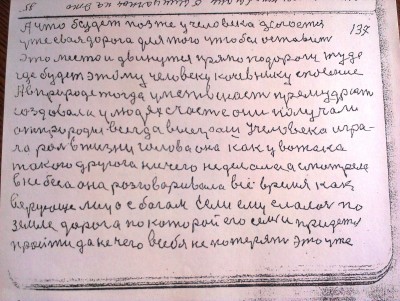 А что будет позже у человека делается
137
уже своя дорога для того чтобы оставит
это место и двинутся прямо по дороги туда
где будет этому человеку кочевнику спосение
А в природе тогда уметь
создовала у людях счастье они получали
от природы всегда выиграш Человека игра-
ла рол в жизни голова она как у вожака
такого другога ничего не делала а смотрела
в небеса она розговаривала всё время как
верующе лицо с богам если ему слалас по
земле дорога по которой его семи придется
пройти да нечего в себя не потерять это уже